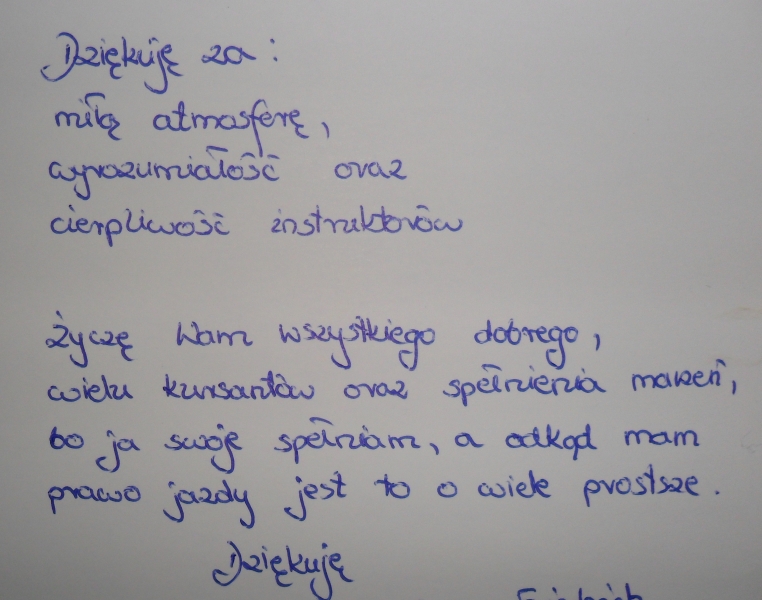 Dziękuję za:
miłą atmosferę,
wyrozumiałość oraz
cierpliwość instruktorów
Życzę Wam wszystkiego dobrego,
wielu kursantów oraz spełnienia marzeń,
bo ja swoje spełniam, a odkąd mam
prawo jazdy jest to o wiele prostsze.
Dziękuję